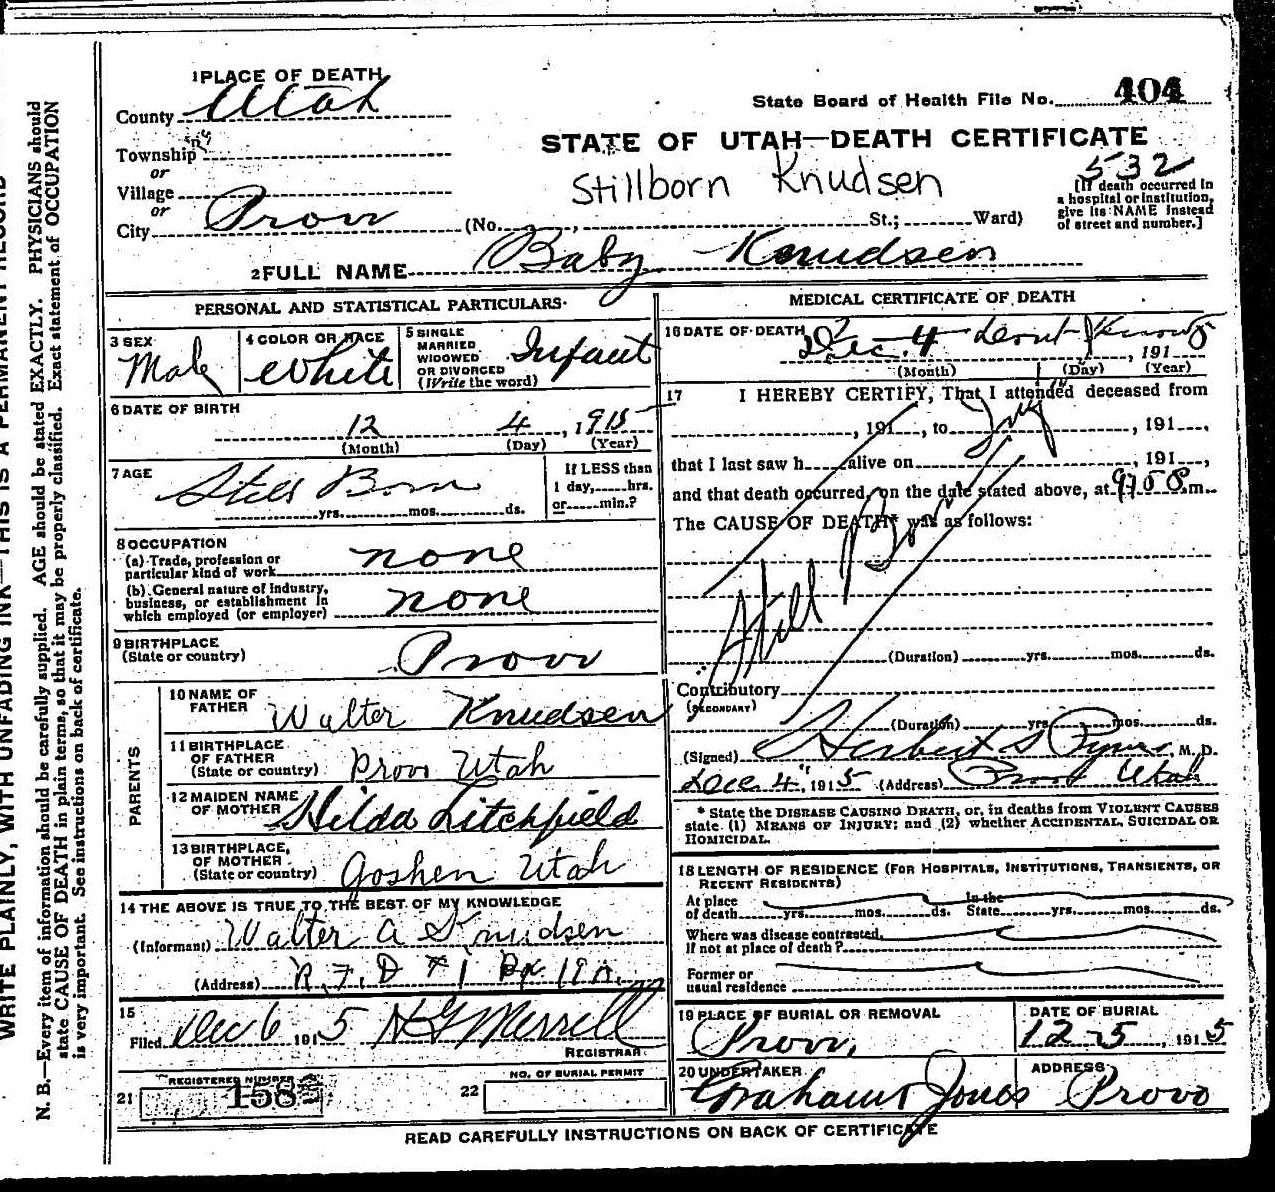 1 PLACE OF DEATH
County Utah
State Board of Health File No. 404
Township
or
Village
or
City Provo
STATE OF UTAH—DEATH CERTIFICATE
532
Stillborn Knudsen
(No. St.; Ward)
[If death occurred in
a hospital or institution,
give its NAME instead
of street and number.]
2 FULL NAME Baby Knudsen
PERSONAL AND STATISTICAL PARTICULARS
3 SEX
Male
4 COLOR OR RACE
White
5 SINGLE
MARRIED
WIDOWED
OR DIVORCED
(Write the word)
Infant
6 DATE OF BIRTH
12 4, 1915
(Month) (Day) (Year)
7 AGE
Still Born
yrs. mos. ds.
If LESS than
1 day, hrs.
or min.?
8 OCCUPATION
(a) Trade, profession or
particular kind of work none
(b) General nature of industry,
business, or establishment in
which employed (or employer) none
9 BIRTHPLACE
(State or country) Provo
PARENTS
10 NAME OF
FATHER Walter Knudsen
11 BIRTHPLACE
OF FATHER
(State or country) Provo Utah
12 MAIDEN NAME
OF MOTHER Hilda Litchfield
13 BIRTHPLACE,
OF MOTHER
(State or country) Goshen Utah
14 THE ABOVE IS TRUE TO THE BEST OF MY KNOWLEDGE
(Informant) Walter A Knudsen
(Address) R.F.D #1 Bx
15
Filed Dec 6 1915 Merrell
REGISTRAR
21 REGISTERED NUMBER
158
22 NO. OF BURIAL PERMIT
MEDICAL CERTIFICATE OF DEATH
16 DATE OF DEATH
Dec. 4 dont Know, 1915
(Month) (Day) (Year)
17 I HEREBY CERTIFY, That I attended deceased from
, 191 , to , 191 ,
that I last saw h alive on , 191 ,
and that death occurred, on the date stated above, at m.
The CAUSE OF DEATH* was as follows:
Still Born
(Duration) yrs. mos. ds.
Contributory
(SECONDARY)
(Duration) yrs. mos. ds.
(Signed) Herbert S M. D.
Dec 4, 1915 (Address) Provo Utah
* State the DISEASE CAUSING DEATH, or, in deaths from VIOLENT CAUSES
state (1) MEANS OF INJURY; and (2) whether ACCIDENTAL, SUICIDAL OR
HOMICIDAL.
18 LENGTH OF RESIDENCE (FOR HOSPITALS, INSTITUTIONS, TRANSIENTS, OR
RECENT RESIDENTS)
At place In the
of death yrs. mos. ds. State yrs. mos. ds.
Where was disease contracted,
If not at place of death?
Former or
usual residence
19 PLACE OF BURIAL OR REMOVAL
Provo,
DATE OF BURIAL
12 5, 1915
20 UNDERTAKER
Graham Jones
ADDRESS
Provo
READ CAREFULLY INSTRUCTIONS ON BACK OF CERTIFICATE
WRITE PLAINLY, WITH UNFADING INK—THIS IS A PERMANENT RECORD
N. B.—Every item of information should be carefully supplied. AGE should be stated EXACTLY. PHYSICIANS should
state CAUSE OF DEATH in plain terms, so that it may be properly classified. Exact statement of OCCUPATION
is very important. See instructions on back of certificate.